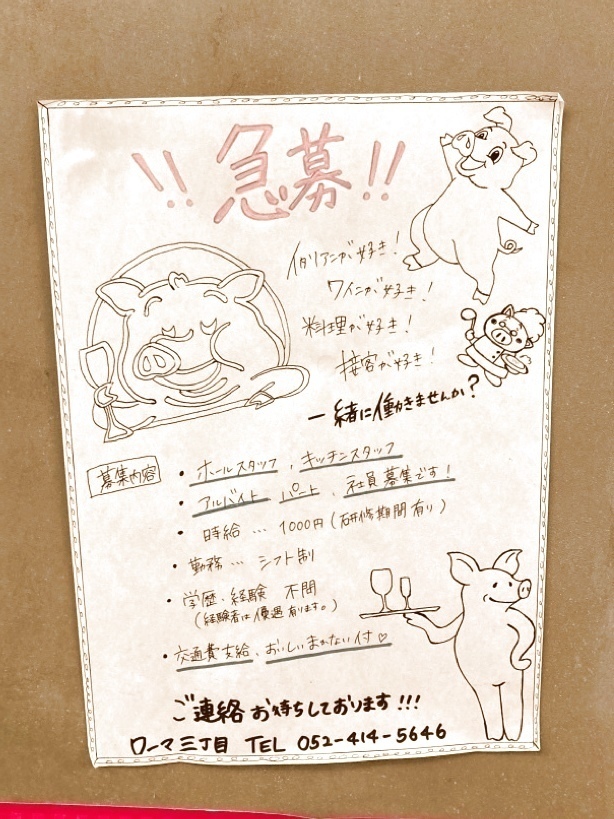 !! 急募 !!
イタリアンが好き!
ワインが好き!
料理が好き!
接客が好き!
一緒に働きませんか?
募集内容
・ホールスタッフ、キッチンスタッフ
・アルバイト パート、社員募集です!
・時給 … 1000円(研修期間有り)
・勤務 … シフト制
・学歴・経験 不問
(経験者は優遇有ります。)
・交通費支給、おいしいまかない付♡
ご連絡お待ちしております!!!
ローマ三丁目 TEL 052-414-5646